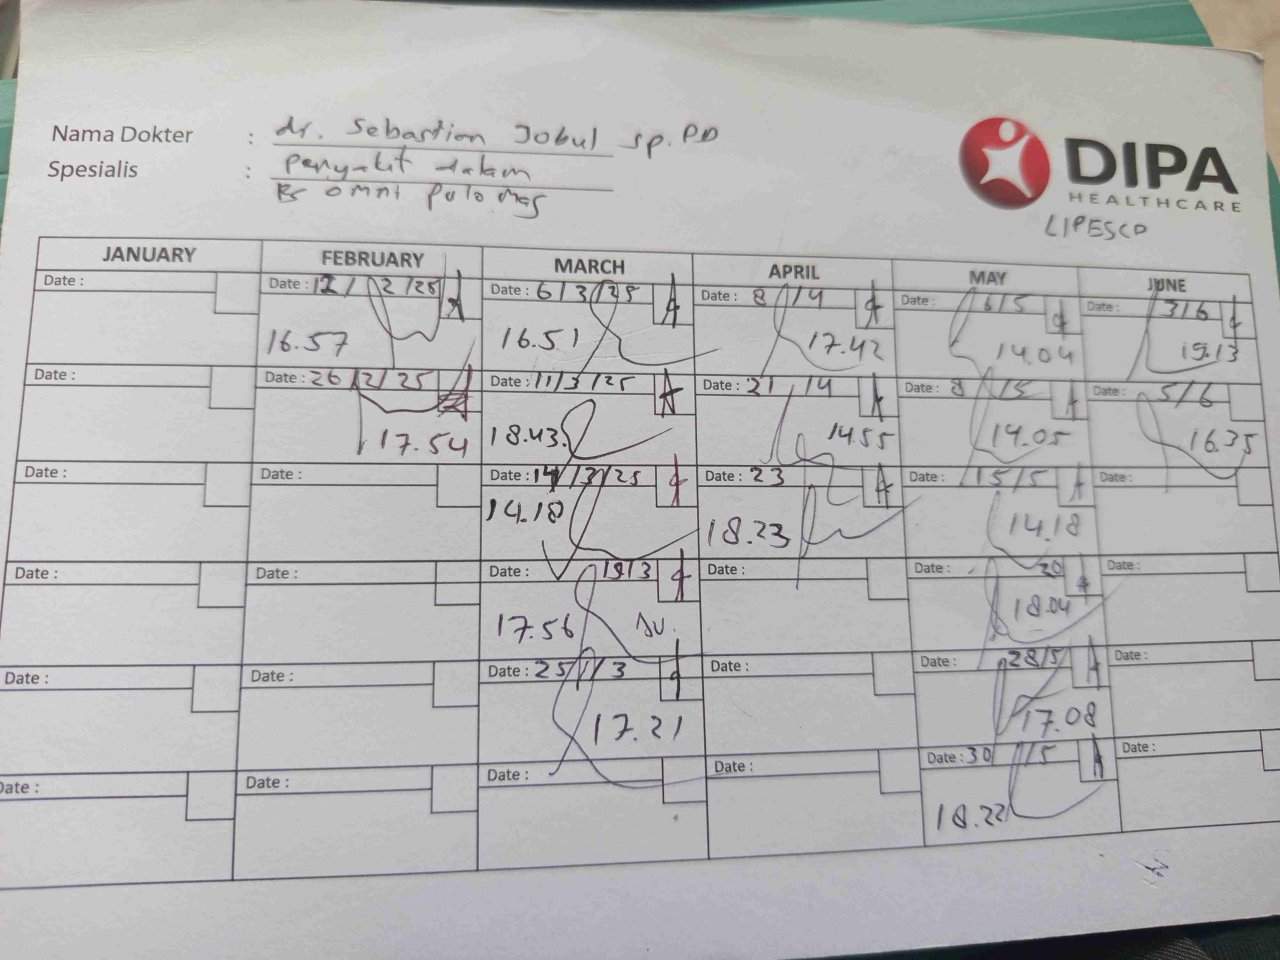 Nama Dokter : dr. Sebastian Jobul sp.PD
Spesialis : Penyakit dalam
RS omni Pulo Mas
DIPA
HEALTHCARE
LIPESCO
JANUARY FEBRUARY MARCH APRIL MAY JUNE
Date : Date : 12/2/25 Date : 6/3/25 Date : 8/4 Date : 6/5 Date : 3/6
16.57 16.51 17.42 14.04 19.13
Date : Date : 26/2/25 Date : 11/3/25 Date : 21/4 Date : 8/5 Date : 5/6
17.54 18.43 14.55 14.05 16.35
Date : Date : Date : 14/3/25 Date : 23 Date : 15/5 Date :
14.18 18.23 14.18
Date : Date : Date : 19/3 Date : Date : 20 Date :
17.56 18.04
Date : Date : Date : 25/3 Date : Date : 28/5 Date :
17.21 17.08
Date : Date : Date : Date : Date : 30/5 Date :
18.22